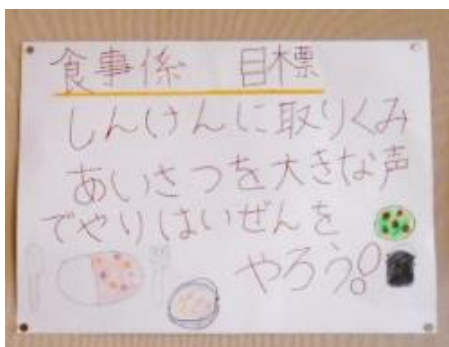 食事係　目標
しんけんに取りくみ
あいさつを大きな声
でやりはいぜんを
やろう!